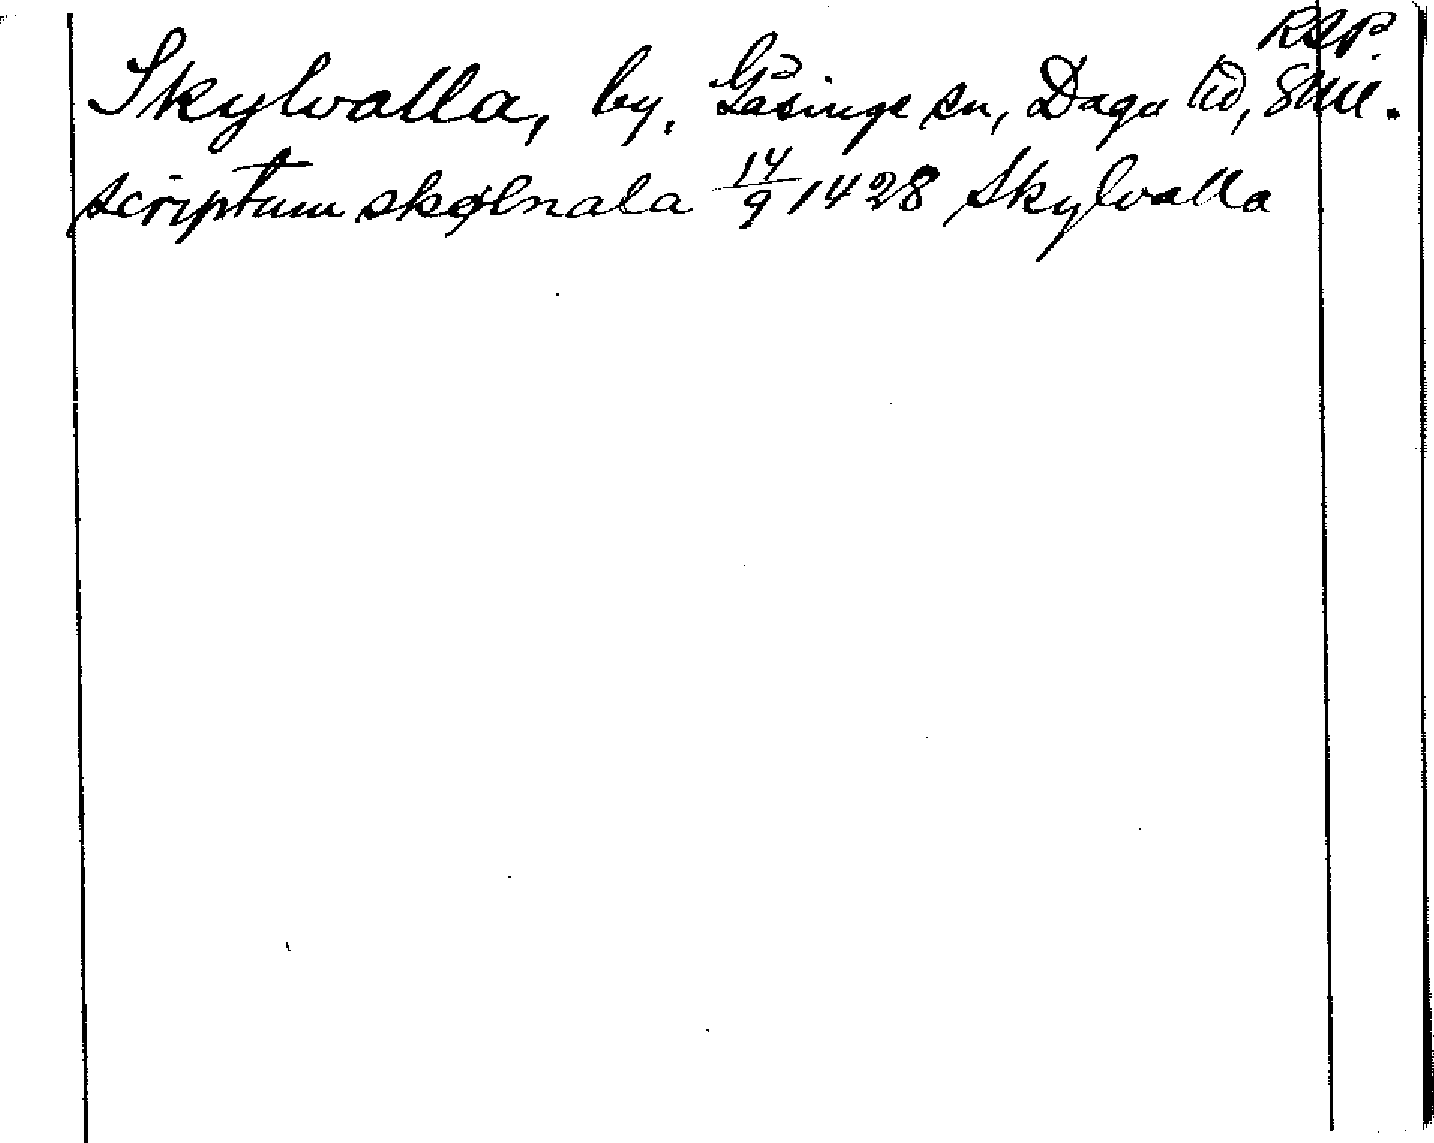 RAP.
Skylvalla, by, Gåsinge sn, Daga hd, Sml.
scriptum skølnala 14/9 1428 Skylvalla